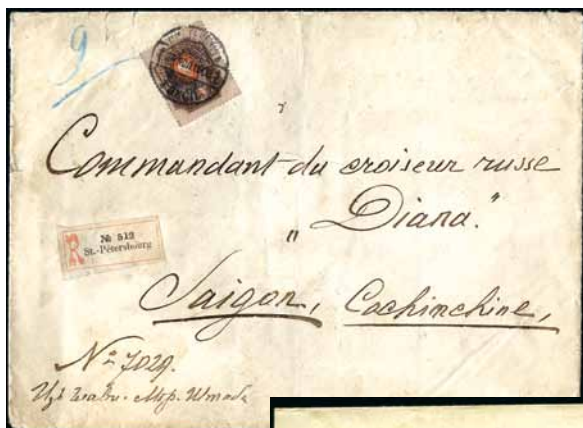 9
Commandant du croiseur russe
„Diana."
R № 519
St.-Pétersbourg
Saigon, Cochinchine,
№ 7029.
Изъ Главн. Мор. Штаба